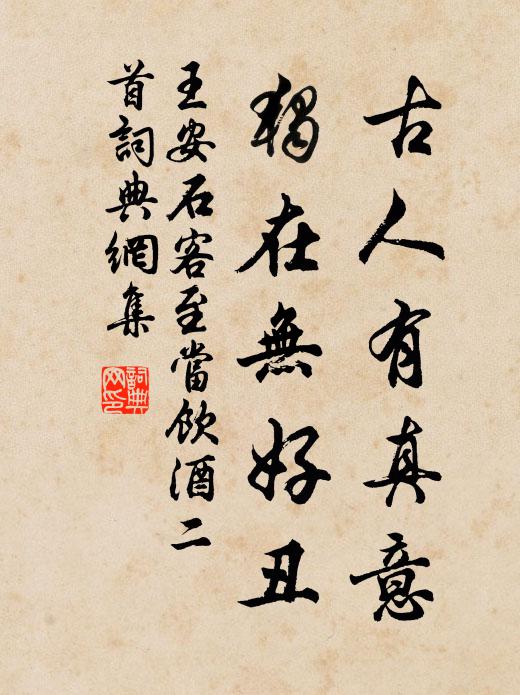 古人有真意
獨在無好丑
王安石客至當飲酒二
首詞典網集
詞典
网印